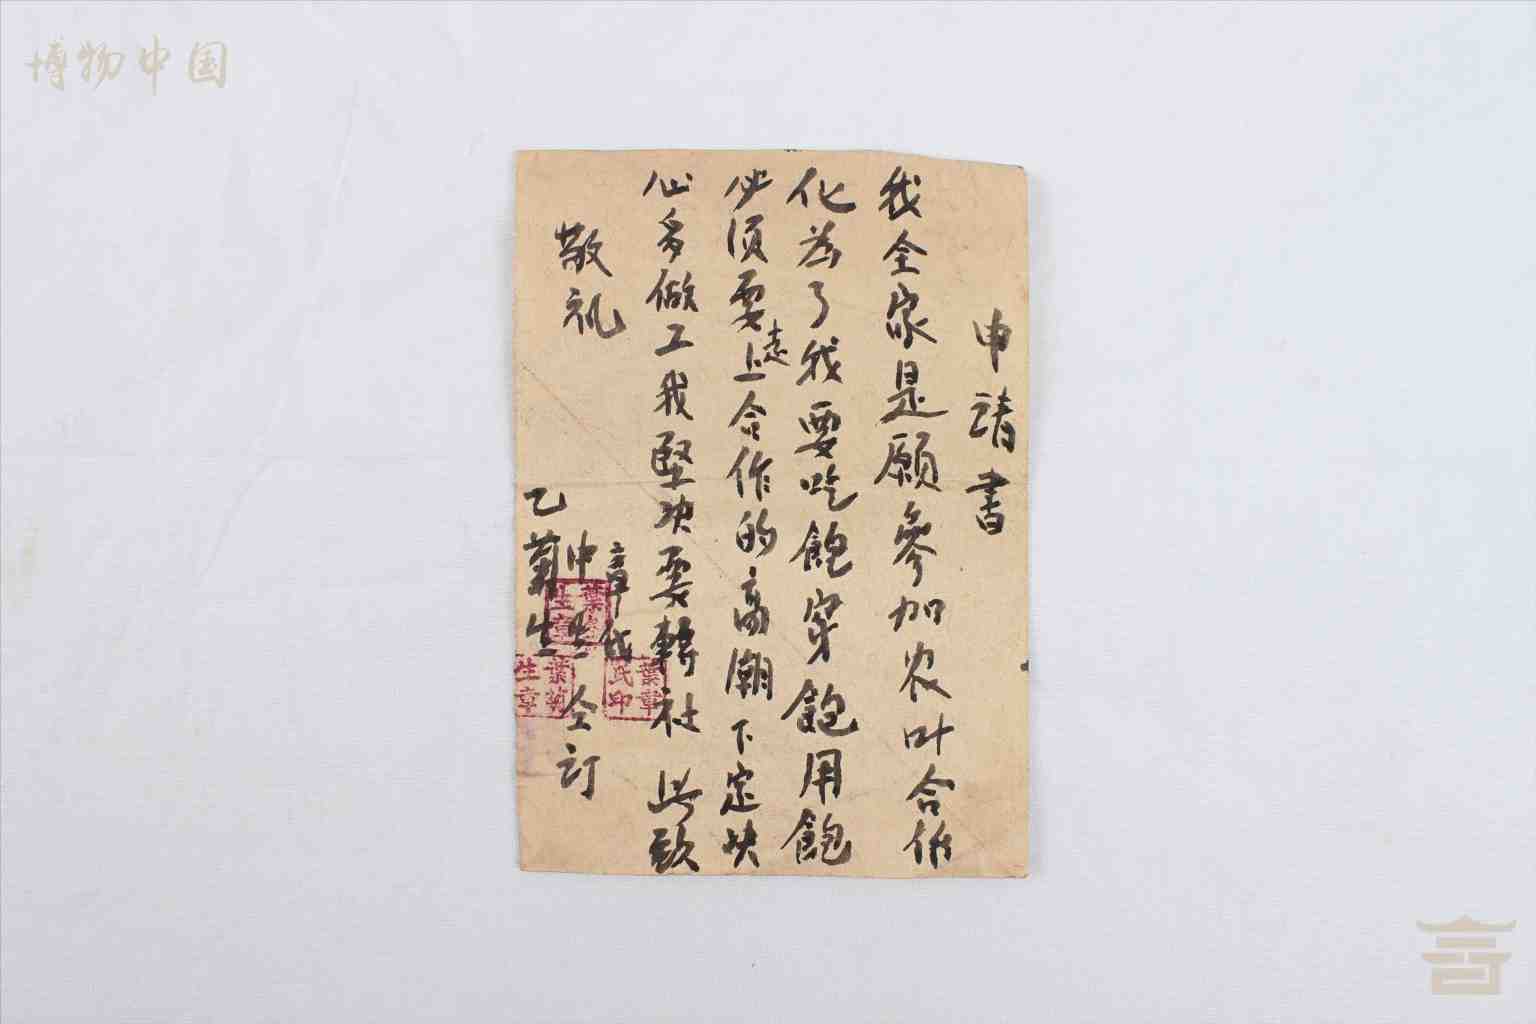 博物中国
申請書
我全家是願參加农叶合作
化为了我要吃飽穿飽用飽
必须要走上合作的高潮下定决
心多做工我堅决要轉社 此致
敬礼
葉章氏印
生章
生章
仝訂